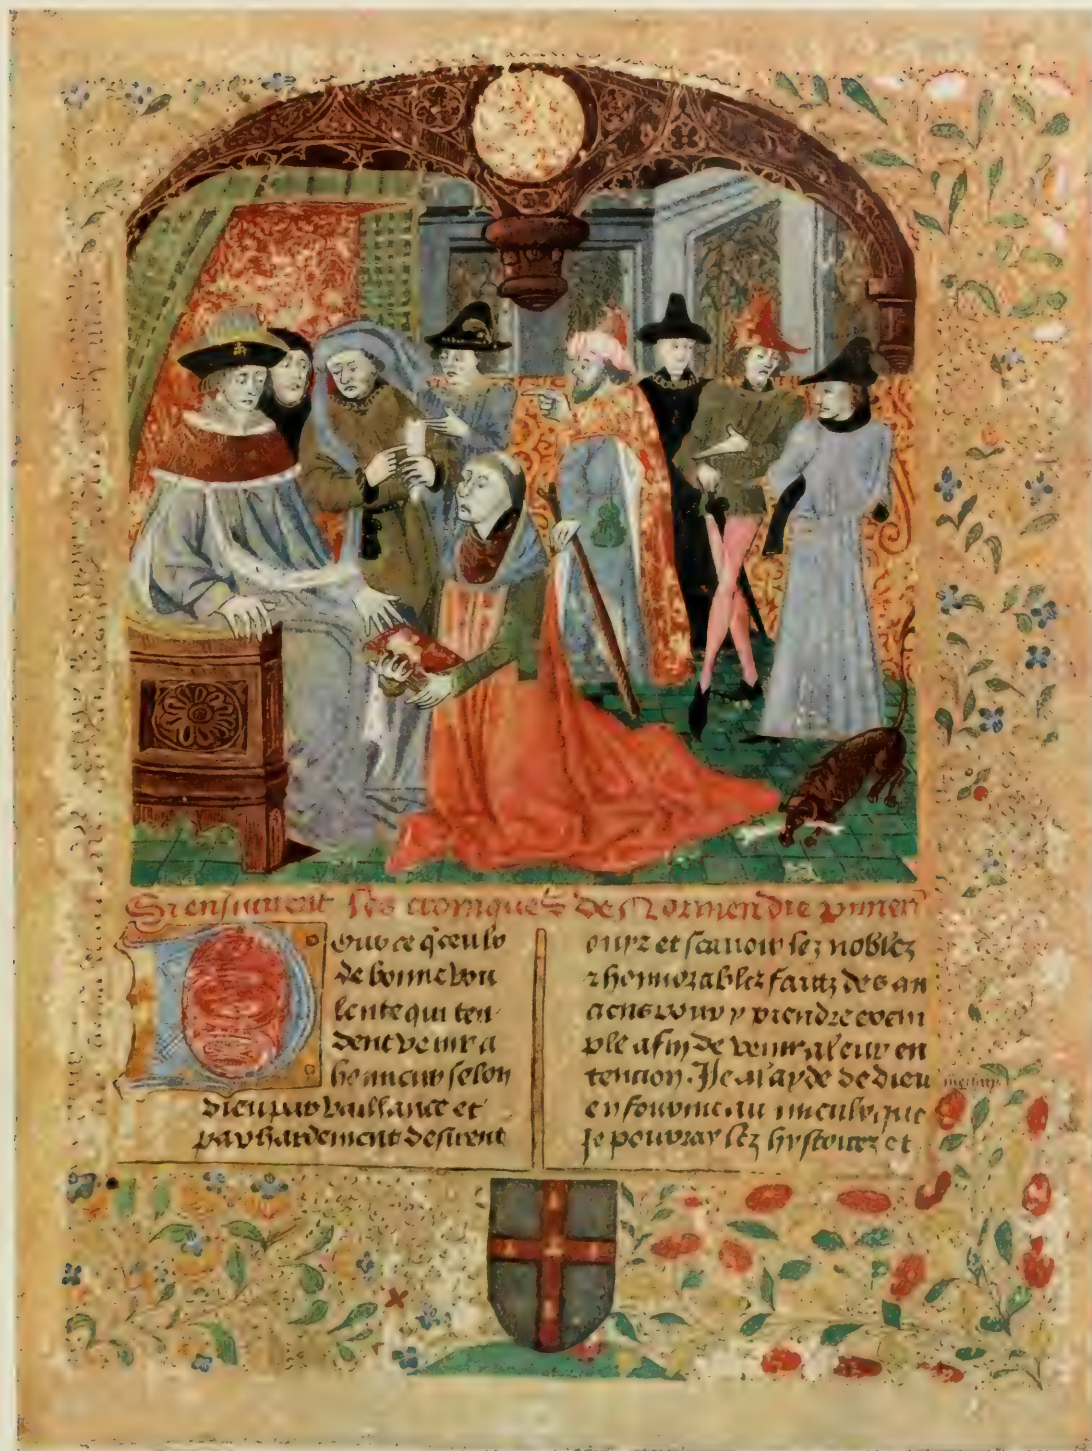 Si ensuivent les croniques de Normendie premer
Pour ce q ceulx
de bonne vou
lente qui ten
dent venir a
honneur selon
dieu par vaillance et
par hardement desirent
ouyr et scauoir lez noblez
z honnorablez faittz des an
ciens pour y prendre exem
ple afin de venir a leur en
tencion. Je a l'ayde de dieu
en fourme au mieulx que
Je pourray lez hystoirez et